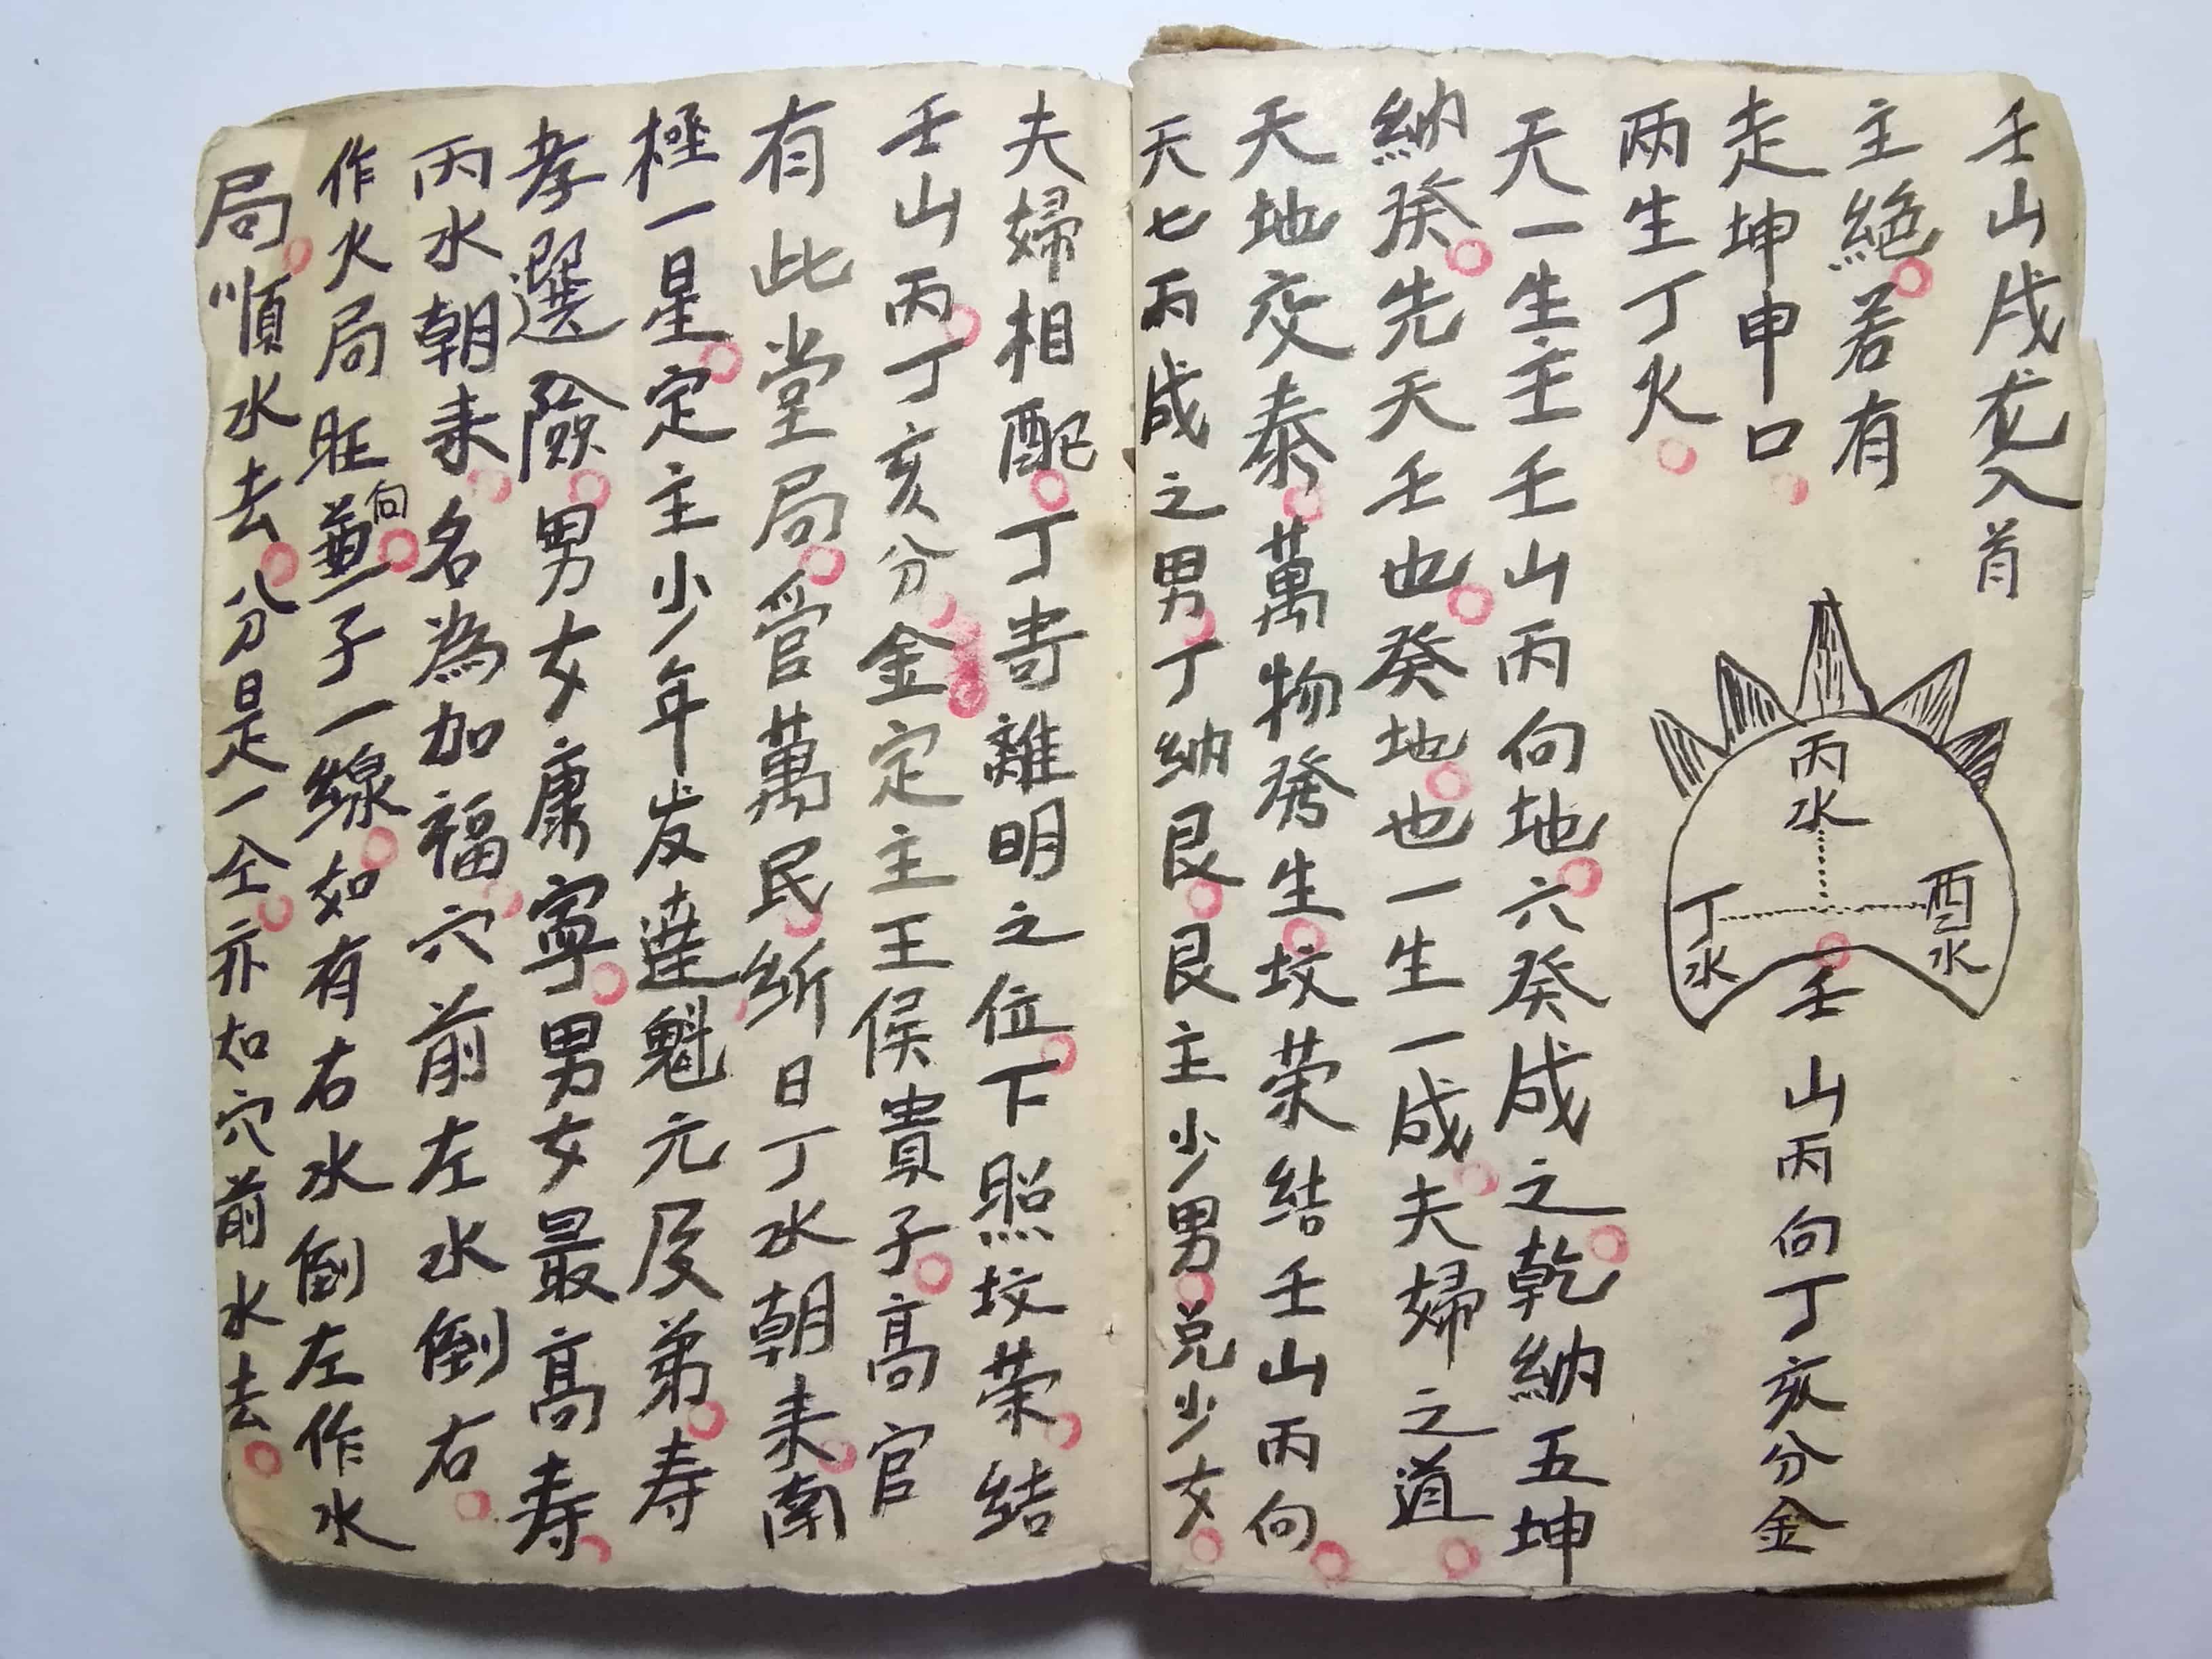 壬山戌龙入首
主絕若有
走坤申口
两生丁火
丙水
丁水
酉水
壬山丙向丁亥分金
天一生主壬山丙向地六癸成之乾納五坤
納癸先天壬也癸地也一生一成夫婦之道
天地交泰萬物發生坟荣結壬山丙向
天七丙成之男丁納艮艮主少男兑少女
夫婦相配丁寄離明之位下照坟荣結
壬山丙丁亥分金定主王侯貴子高官
有此堂局管萬民斩日丁水朝来南
極一星定主少年发達魁元及弟寿
孝選險男女康寧男女最高寿
丙水朝来名為加福穴前左水倒右
作火局旺向子一線如有右水倒左作水
局順水去分是一仝亦右穴前水去